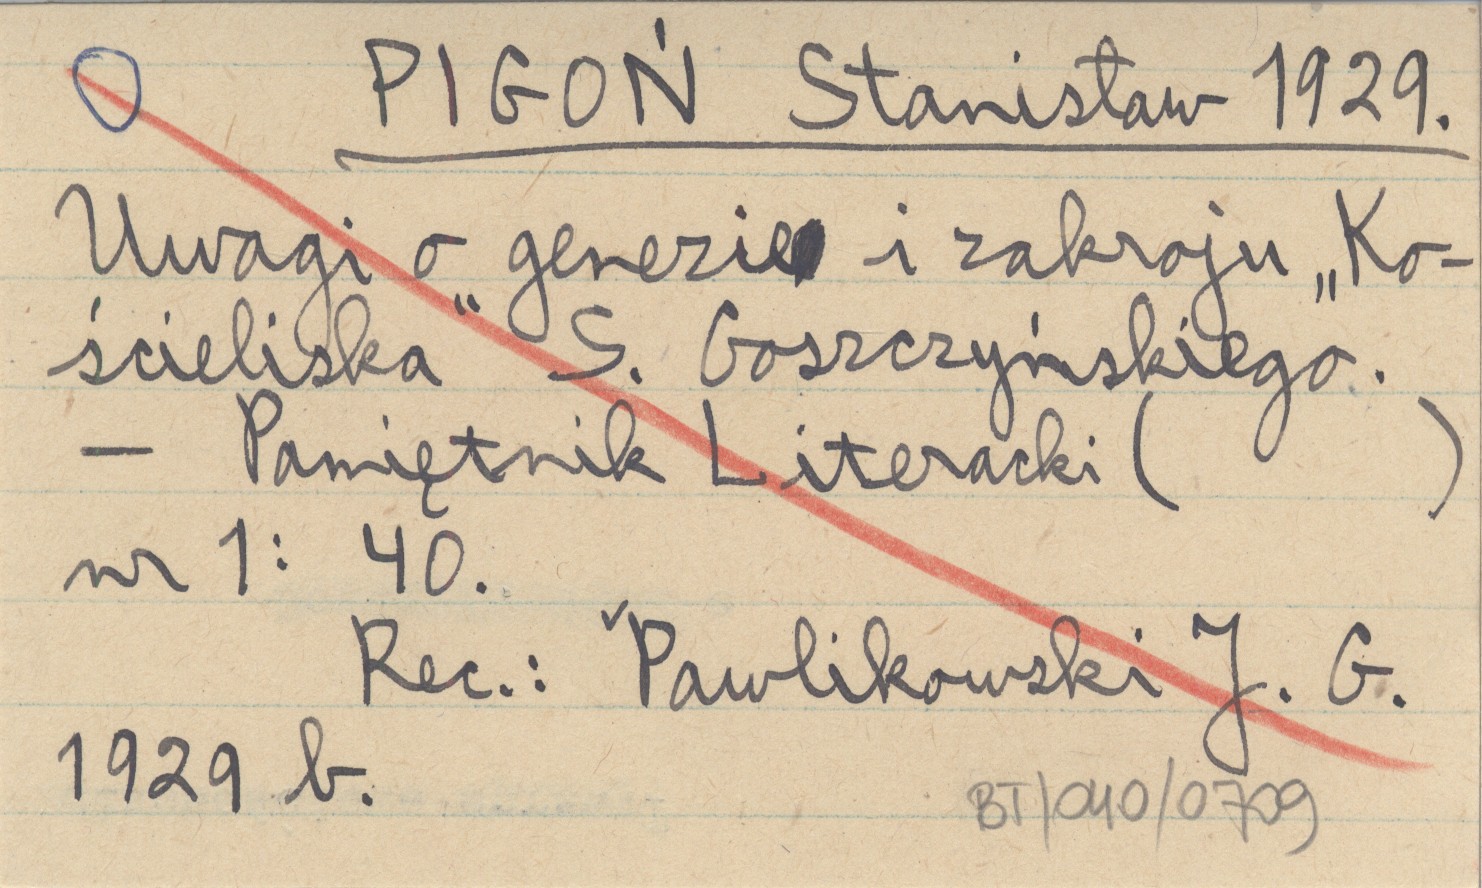 PIGOŃ Stanisław 1929.
Uwagi o genezie i zakroju „Ko-
ścieliska" S. Goszczyńskiego.
— Pamiętnik Literacki (      )
nr 1: 40.
Rec.: ✓Pawlikowski J. G.
1929 b.
BT/040/0709